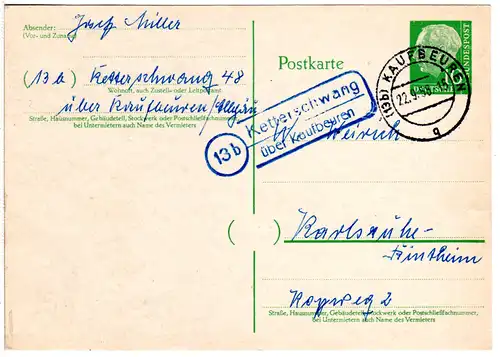 Absender: Josef Miller
(Vor- und Zuname)
(13b) Ketterschwang 48
Wohnort, auch Zustell- oder Leitpostamt
über Kaufbeuren/Allgäu
Straße, Hausnummer, Gebäudeteil, Stockwerk oder Postschließfachnummer,
bei Untermietern auch Name des Vermieters
Postkarte
DEUTSCHE BUNDESPOST
(13b) KAUFBEUREN
q
13b
Ketterschwang
über Kaufbeuren
( )
Karlsruhe-
Rintheim
2
Straße, Hausnummer, Gebäudeteil, Stockwerk oder Postschließfachnummer,
bei Untermietern auch Name des Vermieters